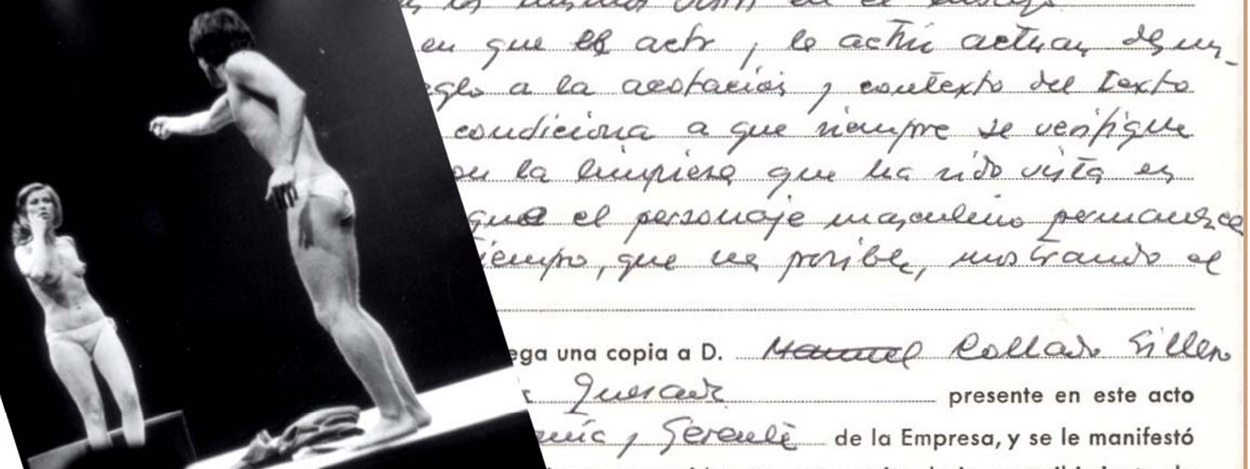 en que el actor y la actriz actuan de un-
eglo a la acotación y contexto del texto
condiciona a que siempre se verifique
con la limpieza que ha sido vista en
que el personaje masculino permanezca
tiempo, que sea posible, mostrando el
ega una copia a D. Manuel Collado Sillero
Quesada presente en este acto
y Gerente de la Empresa, y se le manifestó